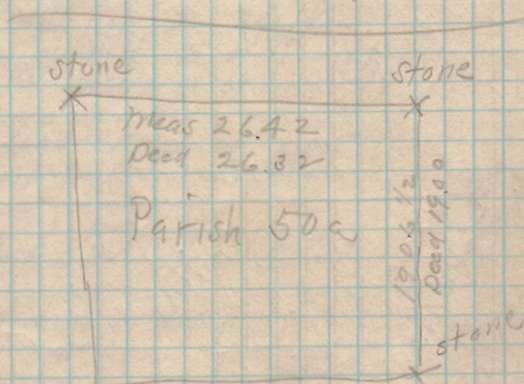 stone
stone
Meas 26.42
Deed 26.32
Parish 50a
19.06 1/2
Deed 19.00
stone